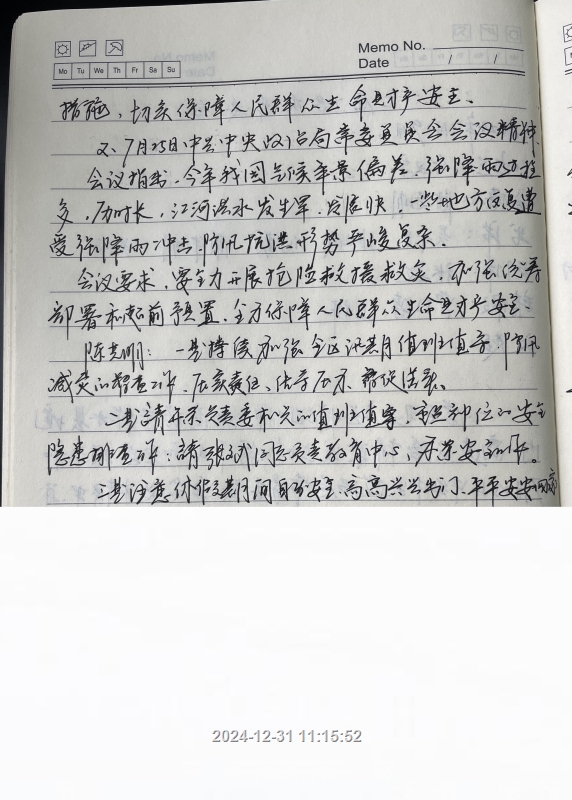 Memo No.
Date / /
Mo Tu We Th Fr Sa Su
措施，切实保障人民群众生命财产安全。
2、7月25日中共中央政治局常委员会会议精神
会议指出，今年我国气候年景偏差，强降雨过程
多，历时长，江河洪水发生早，发展快，一些地方反复遭
受强降雨冲击，防汛抗洪形势严峻复杂。
会议要求，要全力开展抢险救援救灾，加强统筹
部署和超前预置，全力保障人民群众生命财产安全。
陈 明：一是持续加强全区汛期值班值守，防汛
减灾的 工作，压实责任，
二是请 负责委机关的值班值守，重点部位的安全
隐患排查工作，请张 同志负责教育中心， 安全工作。
三是注意休假期间自身安全，高高兴兴出门，平平安安回家
2024-12-31 11:15:52